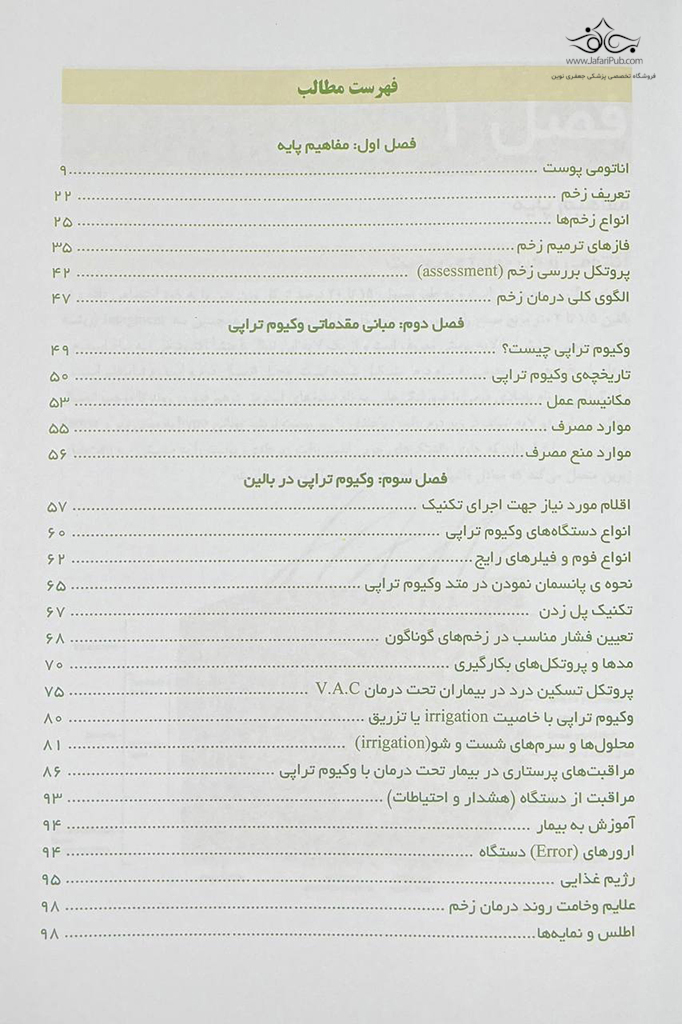 www.JafariPub.com
فروشگاه تخصصی پزشکی جعفری نوین
فهرست مطالب
فصل اول: مفاهیم پایه
اناتومی پوست ........ ۹
تعریف زخم ........ ۲۲
انواع زخم‌ها ........ ۲۵
فازهای ترمیم زخم ........ ۳۵
پروتکل بررسی زخم (assessment) ........ ۴۲
الگوی کلی درمان زخم ........ ۴۷
فصل دوم: مبانی مقدماتی وکیوم تراپی
وکیوم تراپی چیست؟ ........ ۴۹
تاریخچه‌ی وکیوم تراپی ........ ۵۰
مکانیسم عمل ........ ۵۳
موارد مصرف ........ ۵۵
موارد منع مصرف ........ ۵۶
فصل سوم: وکیوم تراپی در بالین
اقلام مورد نیاز جهت اجرای تکنیک ........ ۵۷
انواع دستگاه‌های وکیوم تراپی ........ ۶۰
انواع فوم و فیلرهای رایج ........ ۶۲
نحوه ی پانسمان نمودن در متد وکیوم تراپی ........ ۶۵
تکنیک پل زدن ........ ۶۷
تعیین فشار مناسب در زخم‌های گوناگون ........ ۶۸
مدها و پروتکل‌های بکارگیری ........ ۷۰
پروتکل تسکین درد در بیماران تحت درمان V.A.C ........ ۷۵
وکیوم تراپی با خاصیت irrigation یا تزریق ........ ۸۰
محلول‌ها و سرم‌های شست و شو(irrigation) ........ ۸۱
مراقبت‌های پرستاری در بیمار تحت درمان با وکیوم تراپی ........ ۸۶
مراقبت از دستگاه (هشدار و احتیاطات) ........ ۹۳
آموزش به بیمار ........ ۹۴
ارورهای (Error) دستگاه ........ ۹۴
رژیم غذایی ........ ۹۵
علایم وخامت روند درمان زخم ........ ۹۸
اطلس و نمایه‌ها ........ ۹۸